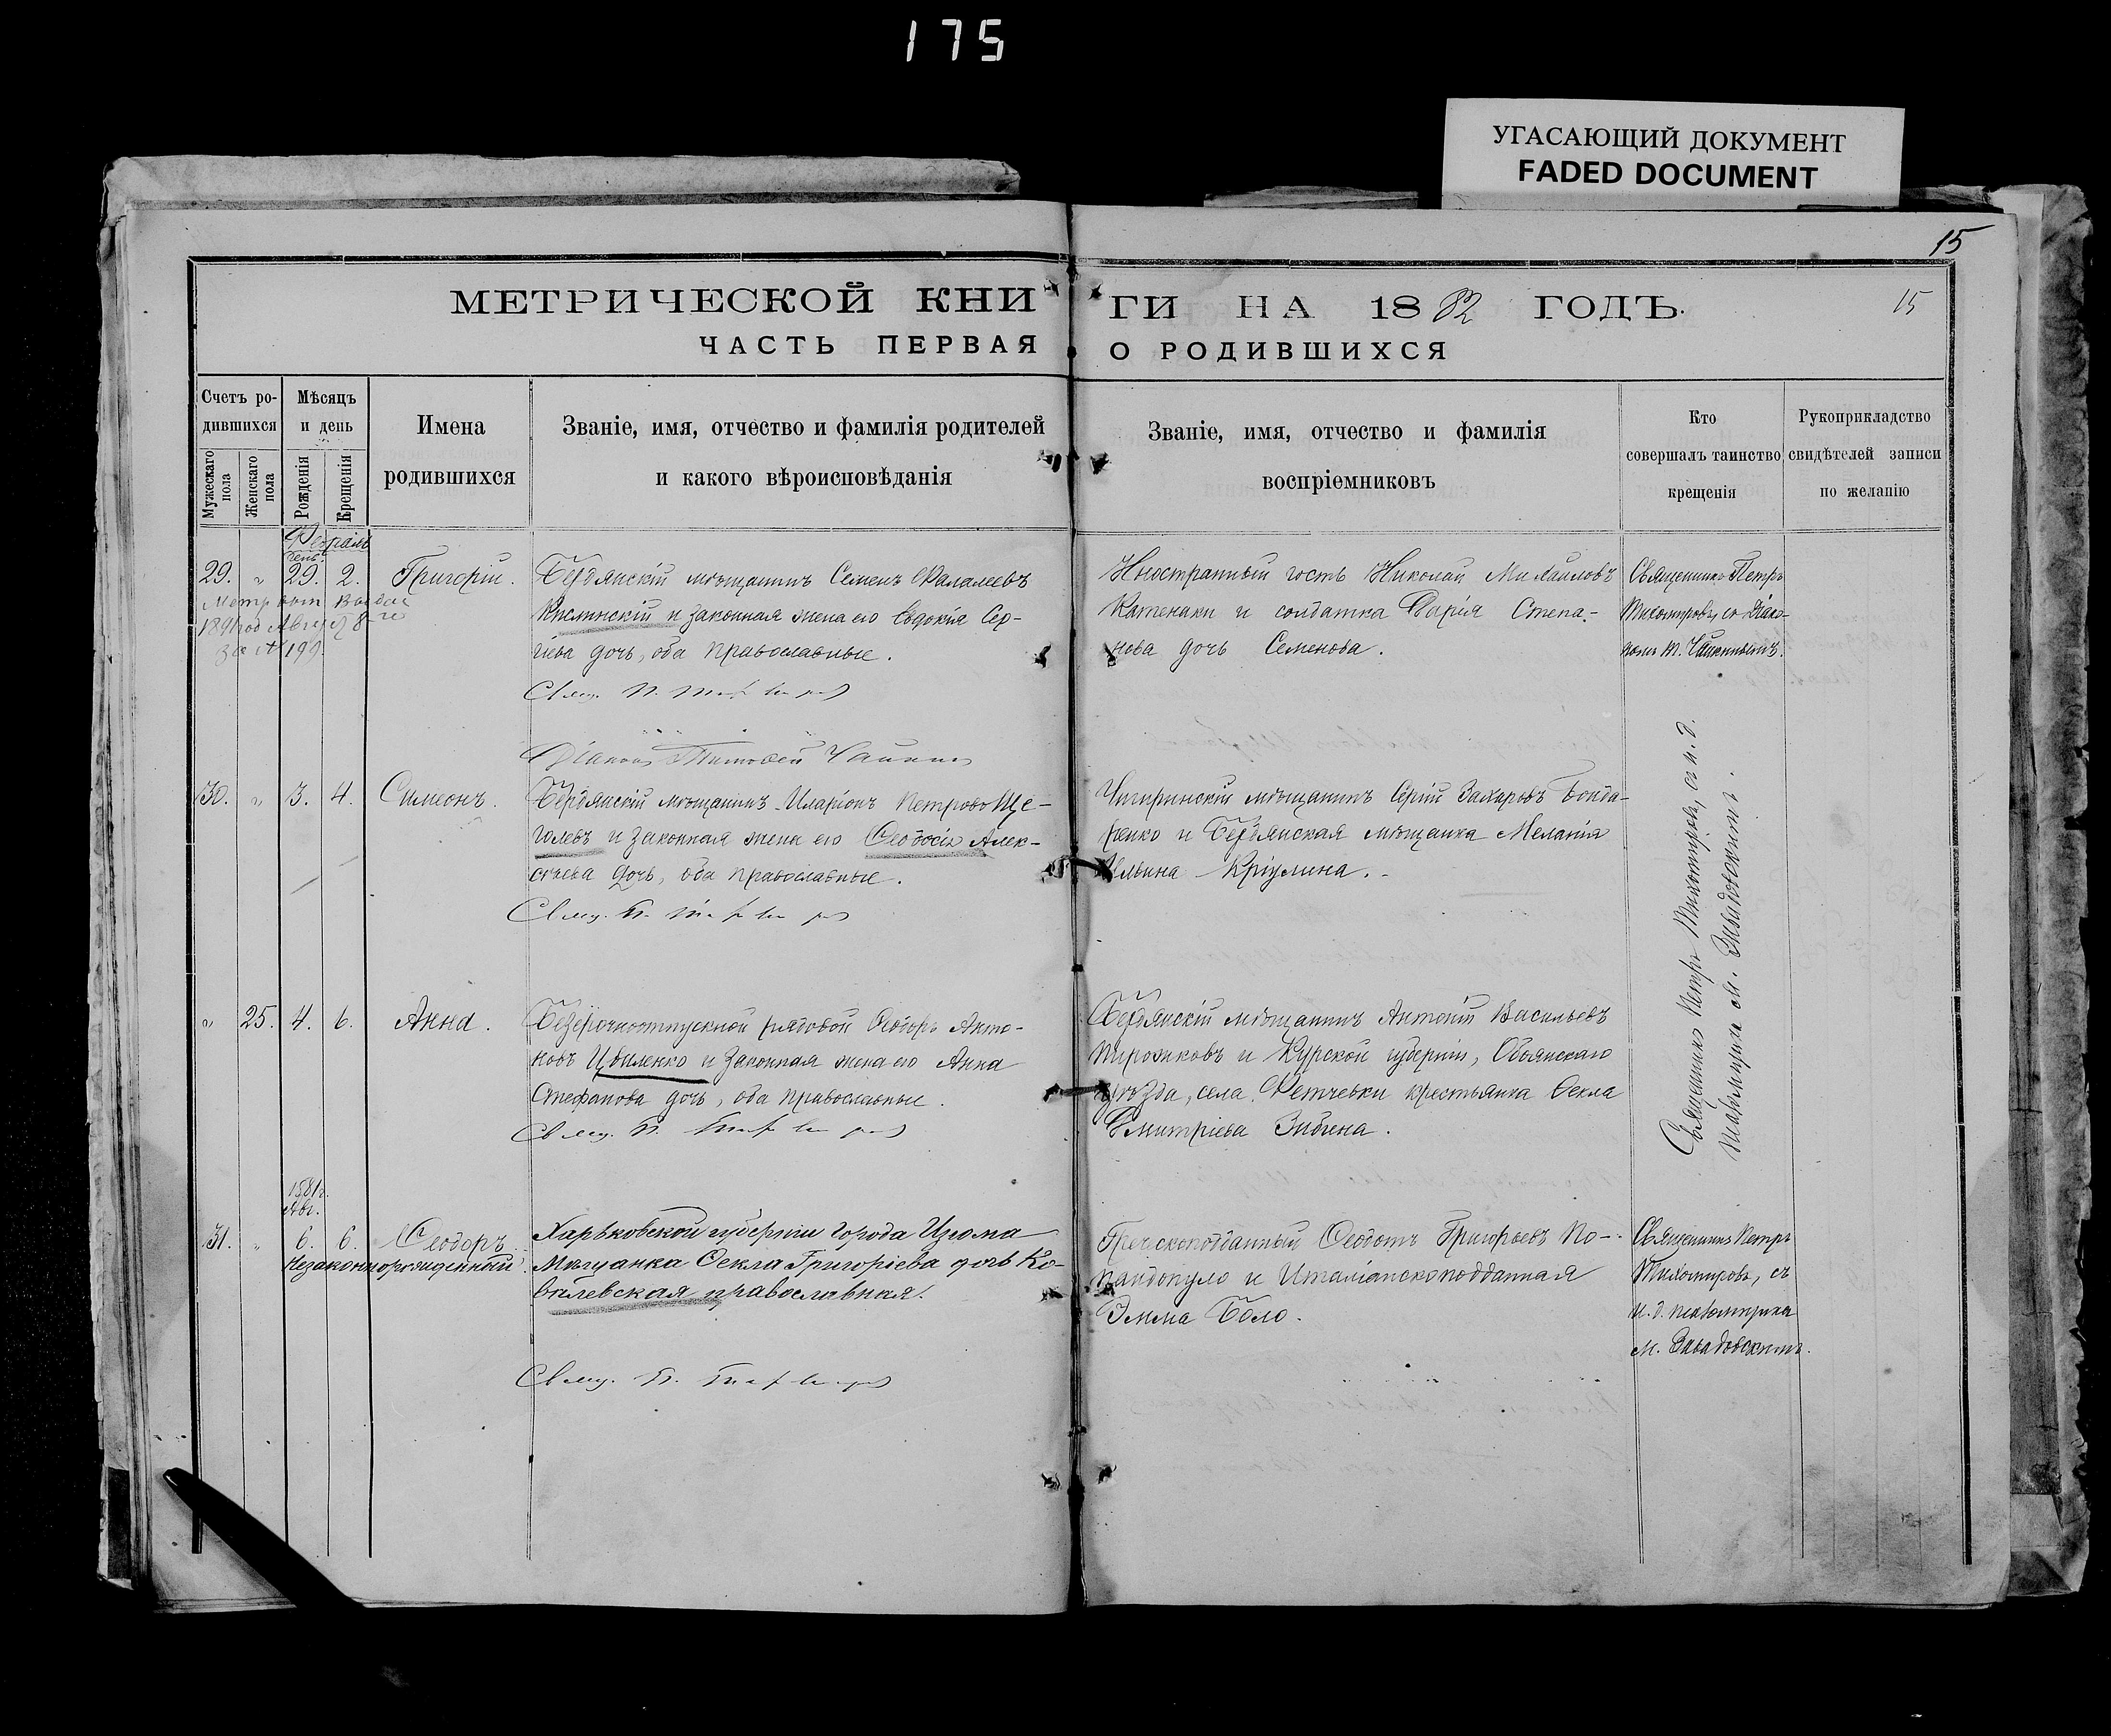 175
УГАСАЮЩИЙ ДОКУМЕНТ
FADED DOCUMENT
15
МЕТРИЧЕСКОЙ КНИ
ГИ НА 1882 ГОДЪ.
15
ЧАСТЬ ПЕРВАЯ
О РОДИВШИХСЯ
Счетъ ро-
дившихся
Мужескаго
пола
Женскаго
пола
Мѣсяцъ
и день
Рожденія
Крещенія
Имена
родившихся
Званіе, имя, отчество и фамилія родителей
и какого вѣроисповѣданія
Званіе, имя, отчество и фамилія
воспріемниковъ
Кто
совершалъ таинство
крещенія
Рукоприкладство
свидѣтелей записи
по желанію
Февраль
29. „ 29. 2. Григорій.
Бердянскій мѣщанинъ Семенъ Фалалеевъ
Кислинскій и законная жена его Евдокія Сер-
гіева дочь, оба православные.
Свящ. П.
Діаконъ Тимофей Чайкинъ
Иностранный гость Николай Михайловъ
Катенаки и солдатка Дарія Степа-
нова дочь Семенова.
Священникъ Петръ
Тихомировъ, съ Діако-
номъ Т. Чайкинымъ.
30. „ 3. 4. Симеонъ.
Бердянскій мѣщанинъ Иларіонъ Петровъ Ще-
голевъ и законная жена его Ѳеодосія Алек-
сѣева дочь, оба православные.
Свящ. П.
Чигиринскій мѣщанинъ Сергій Захаровъ Бонда-
ренко и Бердянская мѣщанка Меланія
Ильина Кріулина.
Священникъ Петръ Тихомировъ, съ и. д.
псаломщика М. Завадовскимъ.
„ 25. 4. 6. Анна.
Безсрочноотпускной рядовой Ѳеодоръ Анто-
новъ Цвиленко и законная жена его Анна
Стефанова дочь, оба православные.
Свящ. П.
Бердянскій мѣщанинъ Антоній Васильевъ
Пирожковъ и Курской губерніи, Обоянскаго
уѣзда, села Фетчевки крестьянка Ѳекла
Димитріева Зибина.
1881г.
Авг.
31. „ 6. 6. Ѳеодоръ
незаконнорожденный.
Харьковской губерніи города Изюма
мѣщанка Ѳекла Григоріева дочь Ко-
вилевская православная.
Свящ. П.
Греческоподданный Ѳеодотъ Григорьевъ По-
пандопуло и Италіанскоподданная
Эмма Боло.
Священникъ Петръ
Тихомировъ, съ
и. д. псаломщика
М. Завадовскимъ.